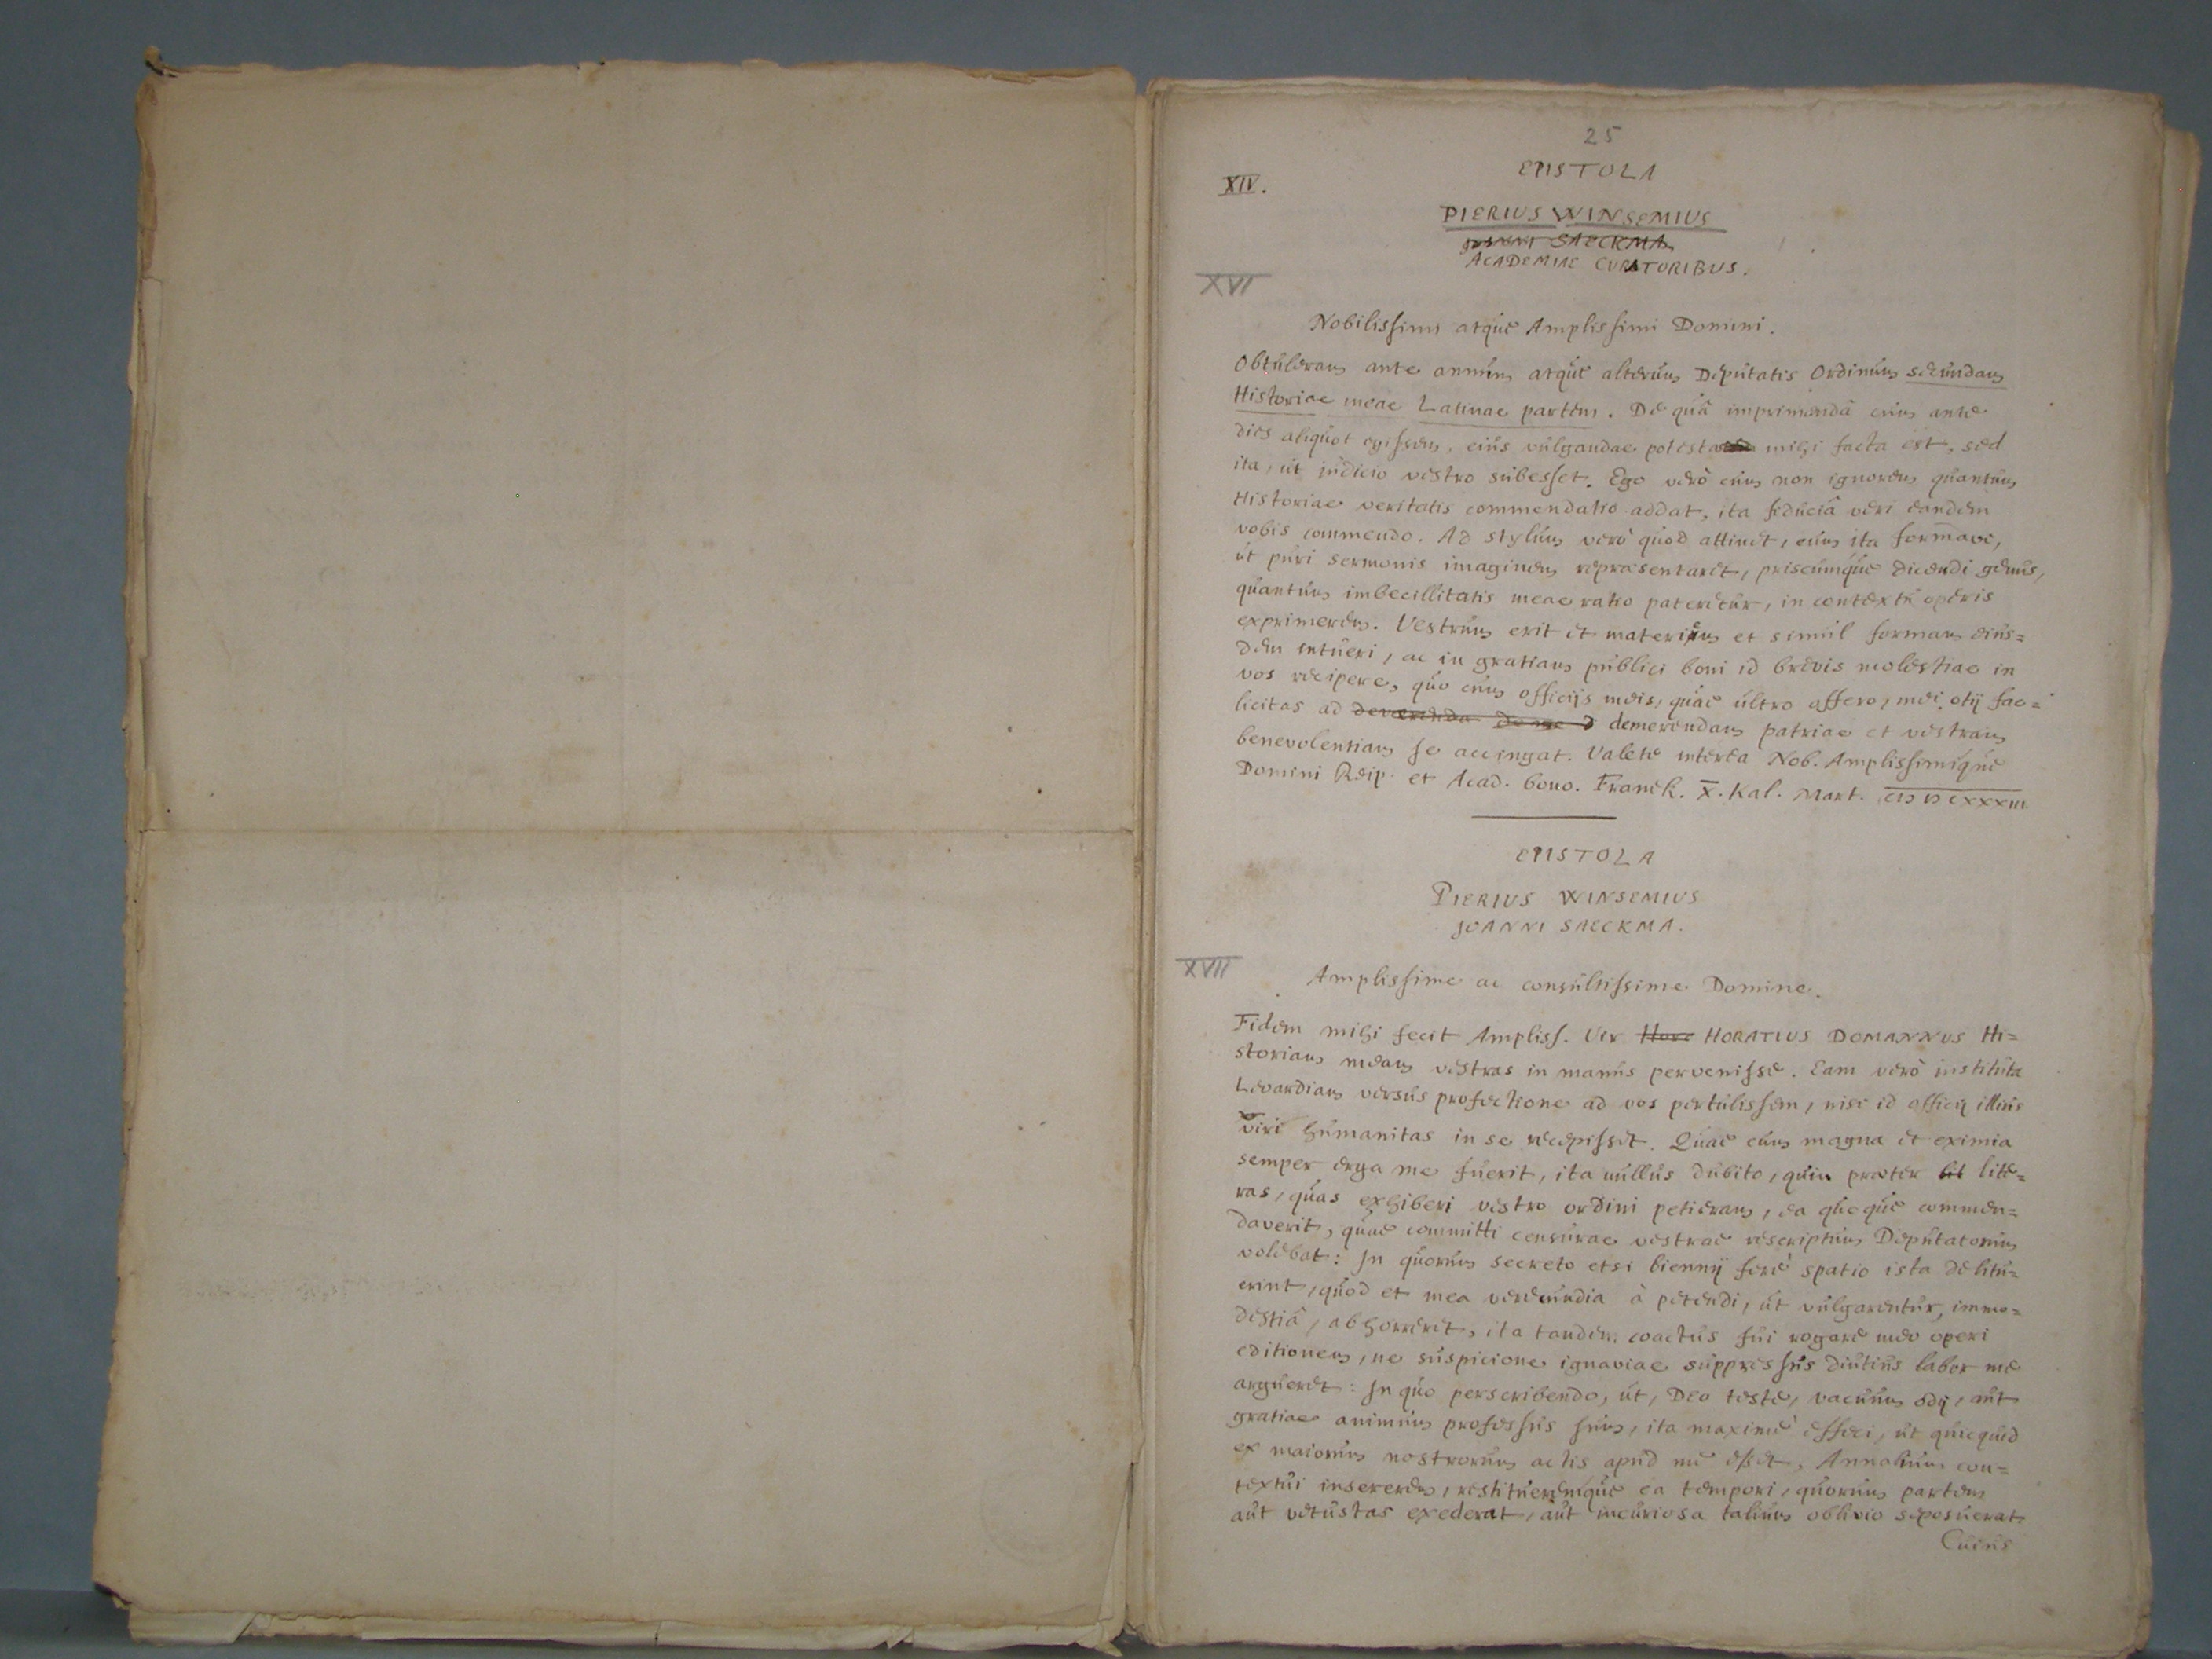 25
EPISTOLA
XIV.
PIERIUS WINSEMIUS
JOANNI SAECKMA
ACADEMIAE CURATORIBUS.
XVI
Nobilissimi atque Amplissimi Domini.
Obtuleram ante annum atque alterum Deputatis Ordinum secundam
Historiae meae Latinae partem. De quâ imprimendâ cum ante
dies aliquot egissem, eius vulgandae potestas mihi facta est, sed
ita, ut judicio vestro subesset. Ego verò cum non ignorem quantum
Historiae veritatis commendatio addat, ita fiduciâ veri eandem
vobis commendo. Ad stylum verò quod attinet, eum ita formavi,
ut puri sermonis imaginem repraesentaret, priscumque dicendi genus,
quantum imbecillitatis meae ratio pateretur, in contextu operis
exprimerem. Vestrum erit et materiem et simul formam eius=
dem intueri, ac in gratiam publici boni id brevis molestiae in
vos recipere, quo cum officijs meis, quae ultro offero, mei otij fae=
licitas ad demerendam patriae et vestram
benevolentiam se accingat. Valete interea Nob. Amplissimique
Domini Reip. et Acad. bono. Franek. X. Kal. Mart. CIƆ IƆ CXXXIII
EPISTOLA
PIERIUS WINSEMIUS
JOANNI SAECKMA.
XVII
Amplissime ac consultissime Domine.
Fidem mihi fecit Ampliss. Vir Hora HORATIUS DOMANNUS Hi=
storiam meam vestras in manus pervenisse. Eam verò instituta
Levardiam versus profectione ad vos pertulissem, nisi id officij illius
viri humanitas in se recepisset. Quae cum magna et eximia
semper erga me fuerit, ita nullus dubito, quin praeter lit lite=
ras, quas exhiberi vestro ordini petieram, ea quoque commen=
daverit, quae committi censurae vestrae rescriptum Deputatorum
volebat: In quorum secreto etsi biennij ferè spatio ista delitu=
erint, quod et mea verecundia à petendi, ut vulgarentur, immo=
destiâ, abhorreret, ita tandem coactus fui rogare meo operi
editionem, ne suspicione ignaviae suppressus diutius labor me
argueret: In quo perscribendo, ut, Deo teste, vacuum odij, aut
gratiae animum professus sum, ita maximè effeci, ut quicquid
ex maiorum nostrorum actis apud me esset, Annalium con=
textui insererem, restitueremque ea tempori, quorum partem
aut vetustas exederat, aut incuriosa talium oblivio seposuerat.
Cuius